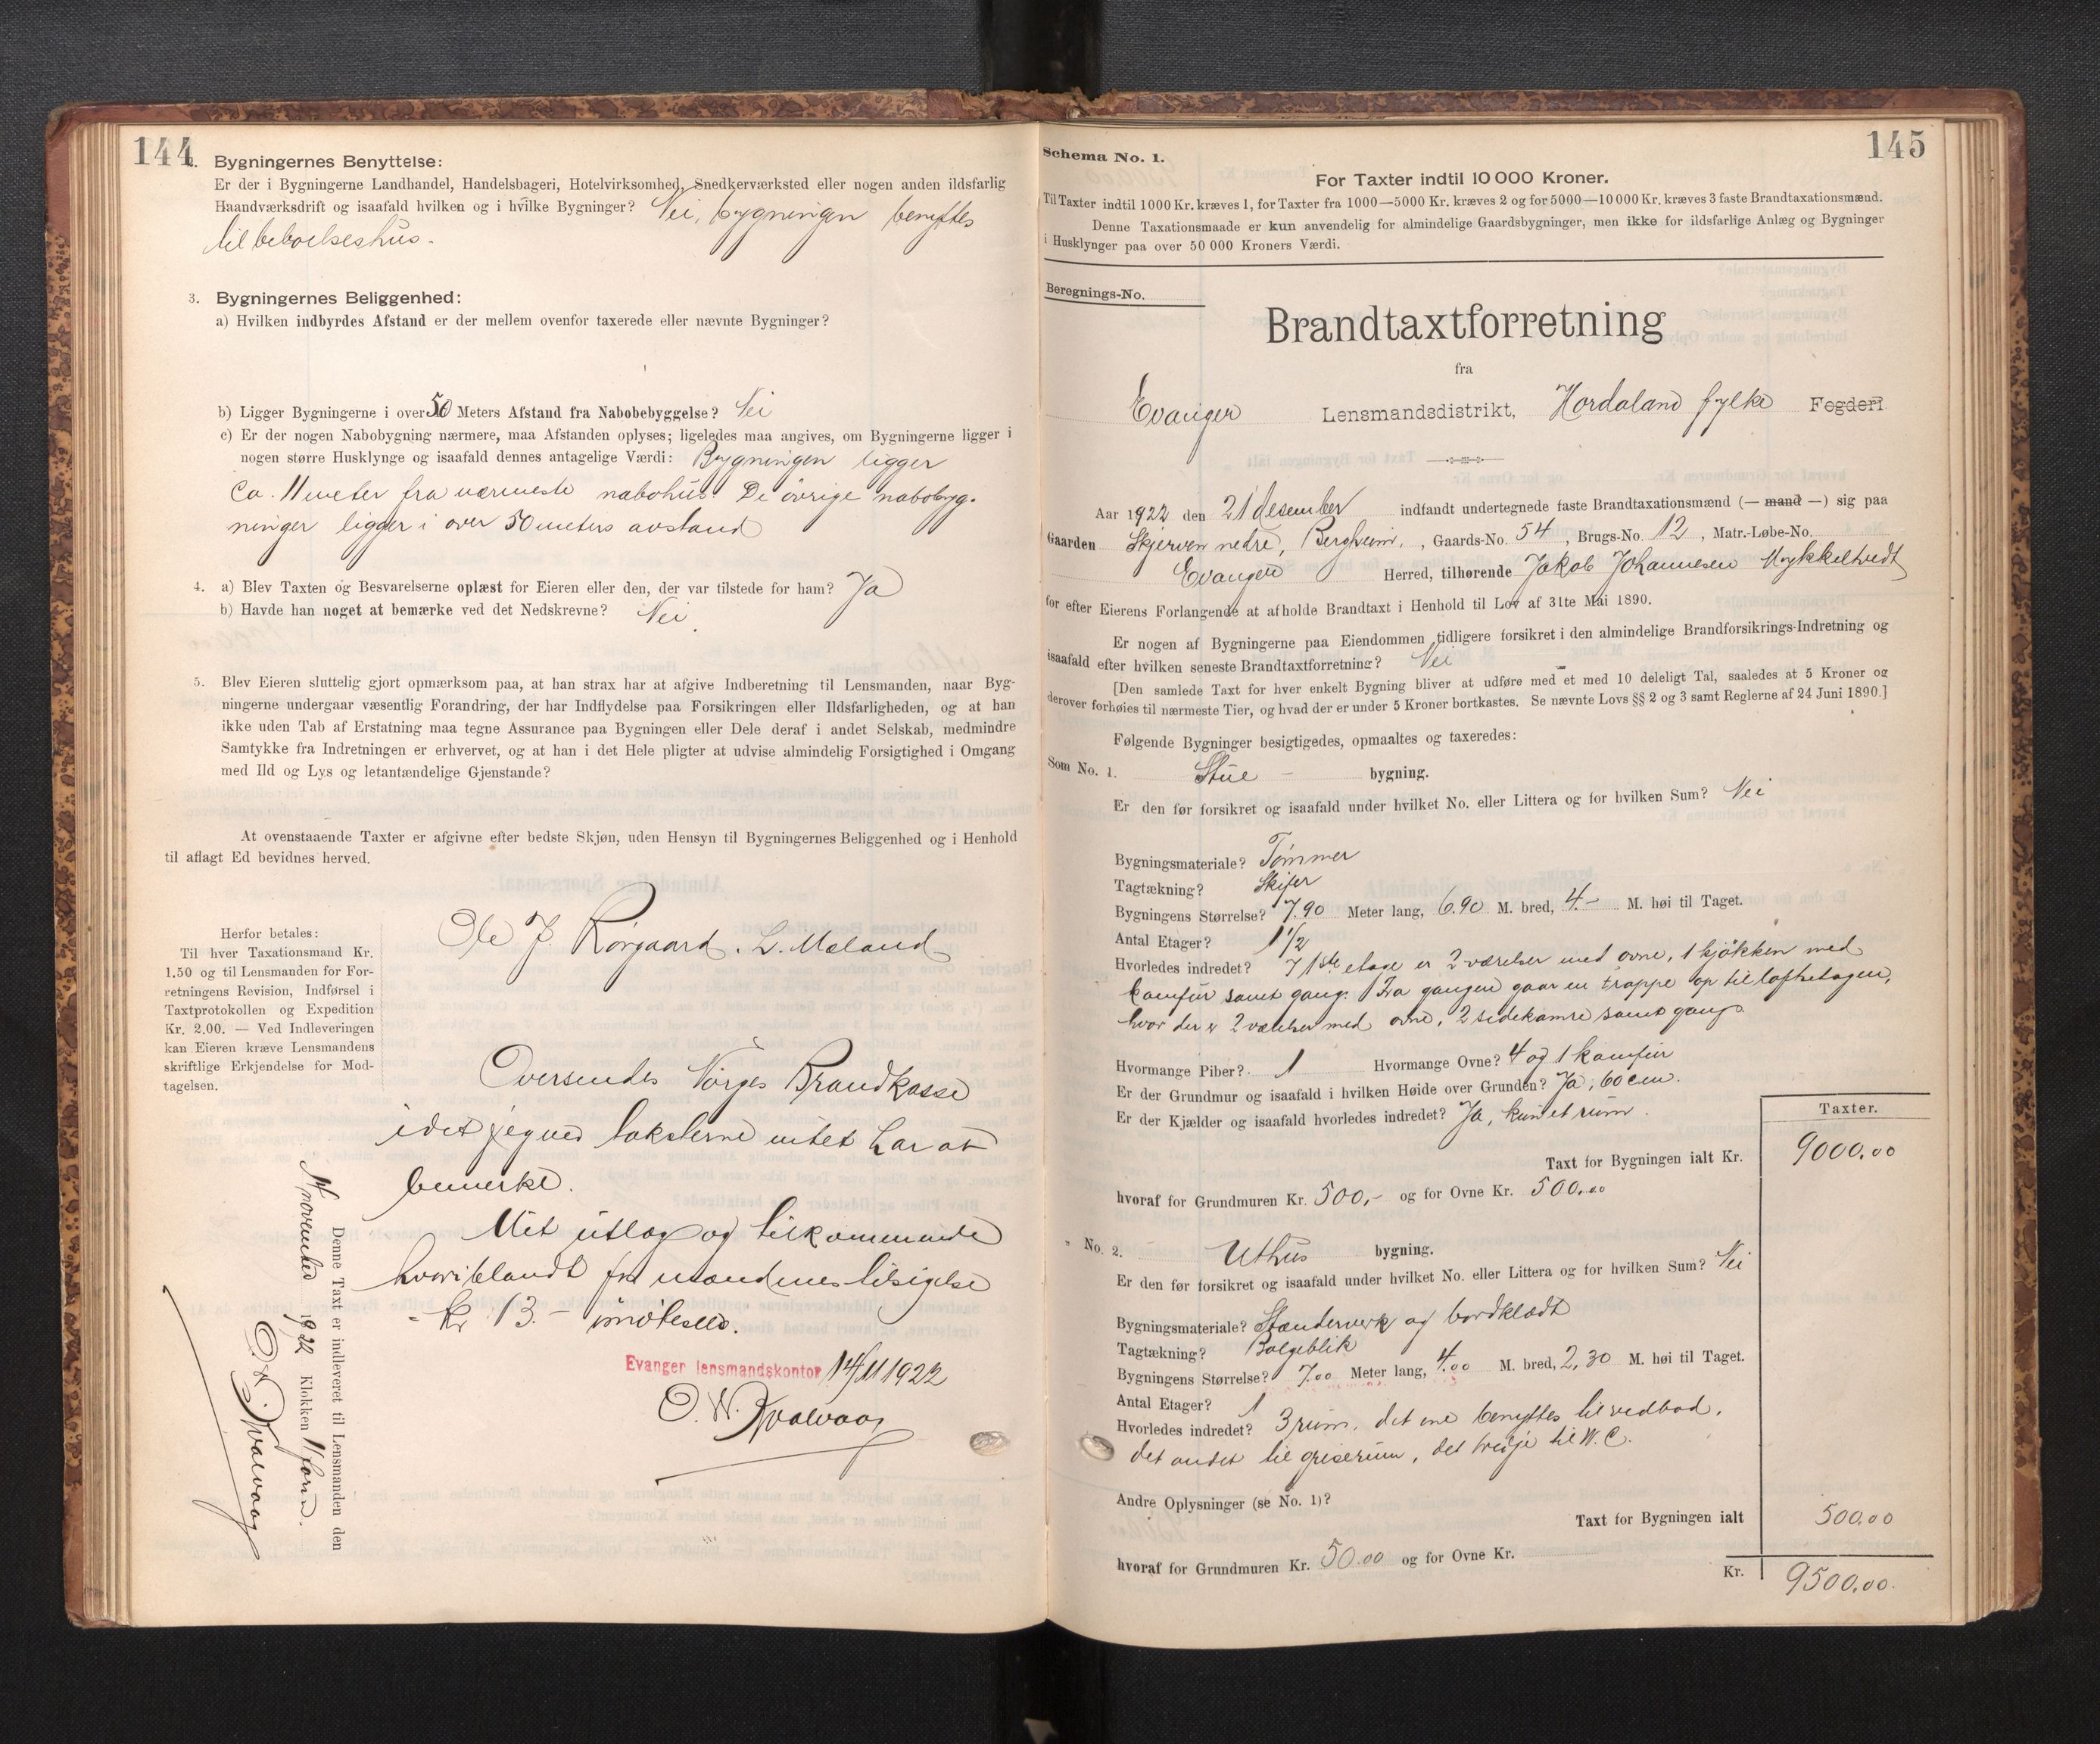 144
2. Bygningernes Benyttelse:
Er der i Bygningerne Landhandel, Handelsbageri, Hotelvirksomhed, Snedkerværksted eller nogen anden ildsfarlig
Haandværksdrift og isaafald hvilken og i hvilke Bygninger? Nei, bygningen benyttes
til beboelseshus.
3. Bygningernes Beliggenhed:
a) Hvilken indbyrdes Afstand er der mellem ovenfor taxerede eller nævnte Bygninger?
b) Ligger Bygningerne i over 50 Meters Afstand fra Nabobebyggelse? Nei
c) Er der nogen Nabobygning nærmere, maa Afstanden oplyses; ligeledes maa angives, om Bygningerne ligger i
nogen større Husklynge og isaafald dennes antagelige Værdi: Bygningen ligger
Ca. 11 meter fra nærmeste nabohus. De övrige nabobyg-
ninger ligger i over 50 meters avstand
4. a) Blev Taxten og Besvarelserne oplæst for Eieren eller den, der var tilstede for ham? Ja
b) Havde han noget at bemærke ved det Nedskrevne? Nei.
5. Blev Eieren sluttelig gjort opmærksom paa, at han strax har at afgive Indberetning til Lensmanden, naar Byg-
ningerne undergaar væsentlig Forandring, der har Indflydelse paa Forsikringen eller Ildsfarligheden, og at han
ikke uden Tab af Erstatning maa tegne Assurance paa Bygningen eller Dele deraf i andet Selskab, medmindre
Samtykke fra Indretningen er erhvervet, og at han i det Hele pligter at udvise almindelig Forsigtighed i Omgang
med Ild og Lys og letantændelige Gjenstande?
At ovenstaaende Taxter er afgivne efter bedste Skjøn, uden Hensyn til Bygningernes Beliggenhed og i Henhold
til aflagt Ed bevidnes herved.
Ole J. Rørgaard. L. Mæland
Herfor betales:
Til hver Taxationsmand Kr.
1.50 og til Lensmanden for For-
retningens Revision, Indførsel i
Taxtprotokollen og Expedition
Kr. 2.00. — Ved Indleveringen
kan Eieren kræve Lensmandens
skriftlige Erkjendelse for Mod-
tagelsen.
Oversendes Norges Brandkasse
idet jeg ved taksterne intet har at
bemerke.
Mit utlæg og tilkommende
hvoriblandt for mændenes tilsigelse
kr 13.- imøtesees.
Evanger lensmandskontor 14/11 1922
O. W. Kvalvaag
Denne Taxt er indleveret til Lensmanden den
14 november 1922 Klokken 11 form.
O. W. Kvalvaag
145
Schema No. 1.
For Taxter indtil 10 000 Kroner.
Til Taxter indtil 1000 Kr. kræves 1, for Taxter fra 1000—5000 Kr. kræves 2 og for 5000—10 000 Kr. kræves 3 faste Brandtaxationsmænd.
Denne Taxationsmaade er kun anvendelig for almindelige Gaardsbygninger, men ikke for ildsfarlige Anlæg og Bygninger
i Husklynger paa over 50 000 Kroners Værdi.
Beregnings-No.
Brandtaxtforretning
fra
Evanger Lensmandsdistrikt, Hordaland fylke Fogderi
Aar 1922 den 21 desember indfandt undertegnede faste Brandtaxationsmænd (— mand —) sig paa
Gaarden Skjerven nedre, Bergheim, Gaards-No. 54, Brugs-No. 12, Matr.-Løbe-No.
Evanger Herred, tilhørende Jakob Johannesen Mykkeltvedt
for efter Eierens Forlangende at afholde Brandtaxt i Henhold til Lov af 31te Mai 1890.
Er nogen af Bygningerne paa Eiendommen tidligere forsikret i den almindelige Brandforsikrings-Indretning og
isaafald efter hvilken seneste Brandtaxtforretning? Nei
[Den samlede Taxt for hver enkelt Bygning bliver at udføre med et med 10 deleligt Tal, saaledes at 5 Kroner og
derover forhøies til nærmeste Tier, og hvad der er under 5 Kroner bortkastes. Se nævnte Lovs §§ 2 og 3 samt Reglerne af 24 Juni 1890.]
Følgende Bygninger besigtigedes, opmaaltes og taxeredes:
Som No. 1. Stue - bygning.
Er den før forsikret og isaafald under hvilket No. eller Littera og for hvilken Sum? Nei
Bygningsmateriale? Tömmer
Tagtækning? Skifer
Bygningens Størrelse? 7.90 Meter lang, 6.90 M. bred, 4.- M. høi til Taget.
Antal Etager? 1 1/2
Hvorledes indredet? I 1ste etage er 2 værelser med ovne, 1 kjøkken med
komfur samt gang. Fra gangen gaar en trappe op til loftsetagen,
hvor der er 2 værelser med ovne, 2 sidekamre samt gang.
Hvormange Piber? 1 Hvormange Ovne? 4 og 1 komfur
Er der Grundmur og isaafald i hvilken Høide over Grunden? Ja, 60 cm.
Er der Kjælder og isaafald hvorledes indredet? Ja, kun et rum.
Taxter.
Taxt for Bygningen ialt Kr. 9000.00
hvoraf for Grundmuren Kr. 500,- og for Ovne Kr. 500.00
" No. 2. Uthus bygning.
Er den før forsikret og isaafald under hvilket No. eller Littera og for hvilken Sum? Nei
Bygningsmateriale? Stenderverk og bordklædt
Tagtækning? Bølgeblik
Bygningens Størrelse? 7.00 Meter lang, 4.00 M. bred, 2,30 M. høi til Taget.
Antal Etager? 1
Hvorledes indredet? 3 rum, det ene benyttes til vedbod,
det andet til griserum, det tredje til W.C.
Andre Oplysninger (se No. 1)?
Taxt for Bygningen ialt 500.00
hvoraf for Grundmuren Kr. 50.00 og for Ovne Kr.
Kr. 9500.00.